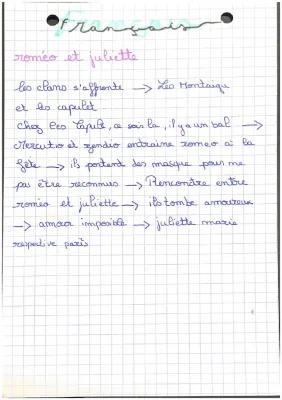 Français
roméo et juliette
les clans s'affronte –> Les Montaigu
et les capulet.
Chez les Capule, ce soir la, il y a un bal –>
Mercutio et
entraine romeo a la
fête –> ils portent des masque pour ne
pas être reconnues –> Rencontre entre
roméo et juliette –> ils tombe amoureux
–> amour imposible –> juliette marie
respective paris